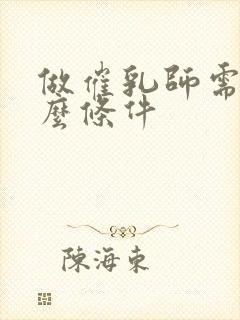 做催乳師需
麼條件
陳海東